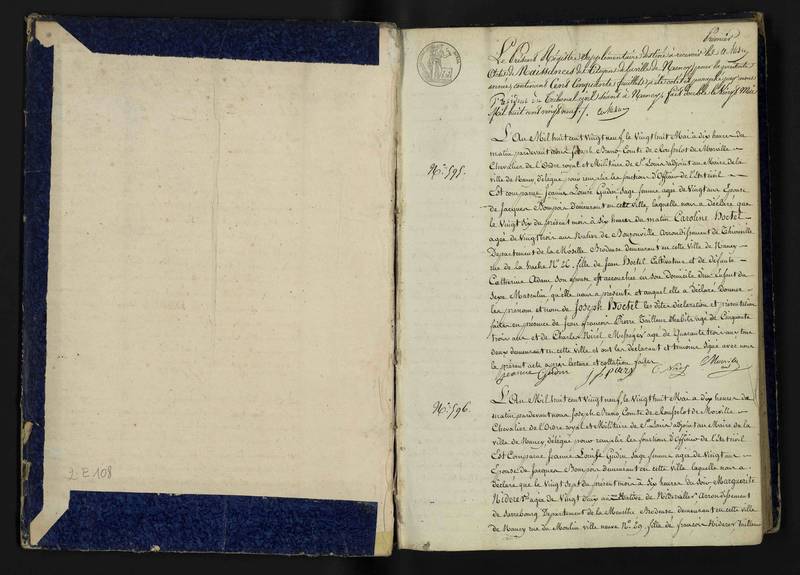 Premier
Le Présent Registre Supplémentaire destiné à recevoir les
Actes de Naissances des Citoyens de la ville de Nancy pour la présente
année, contenant Cent Cinquante feuillets, a été coté et paraphé par nous
Président du Tribunal civil séant à Nancy, fait double le Vingt Mai
Mil huit cent vingt neuf
N.° 595.
L'An Mil huit cent Vingt neuf le Vingt huit Mai à dix heures du
matin pardevant nous Joseph Bruno Comte de Rousselot de Morville
Chevalier de l'Ordre royal et Militaire de St Louis adjoint au Maire de la
ville de Nancy délégué pour remplir les fonctions d'Officier de l'Etat civil
Est comparue Jeanne Louise Guérin Sage femme agée de Vingt ans Epouse
de Jacques Bonpoir demeurant en cette Ville, laquelle nous a déclaré que
le Vingt Six du présent mois à Six heures du matin Caroline Hoctel
agée de Vingt trois ans Native de Bouzonville arrondissement de Thionville
Département de la Moselle Brodeuse demeurant en cette Ville de Nancy
rue de la hache N.° 26, fille de Jean Hoctel Cultivateur et de défunte
Catherine Adam son épouse est accouchée en son Domicile d'un Enfant du
Sexe Masculin, qu'elle nous a présenté et auquel elle a déclaré Donner
les prénom et nom de Joseph Hoctel les dites déclaration et présentation
faites en présence de Jean françois Pierre Tailleur d'habits agé de Cinquante
trois ans et de Charles Noël agé de Quarante trois ans tous
deux demeurant en cette Ville et ont les déclarant et témoins signé avec nous
le présent acte après lecture et collation faites
N.° 596.
L'An Mil huit cent Vingt neuf, le Vingt huit Mai à dix heures du
matin pardevant nous Joseph Bruno Comte de Rousselot de Morville
Chevalier de l'Ordre royal et Militaire de St Louis adjoint au Maire de la
ville de Nancy, délégué pour remplir les fonctions d'Officier de l'Etat civil
Est Comparue Jeanne Louise Guérin Sage femme agée de Vingt ans
Epouse de Jacques Bonpoir demeurant en cette ville, laquelle nous a
déclaré que le Vingt Sept du présent mois à Six heures du Soir Marguerite
Niderer agée de Vingt deux ans Native de Niderviller Arrondissement
de Sarrebourg Département de la Meurthe Brodeuse, demeurant en cette ville
de Nancy rue du Moulin ville neuve N.° 29, fille de françois Niderer Tailleur
2 E 108